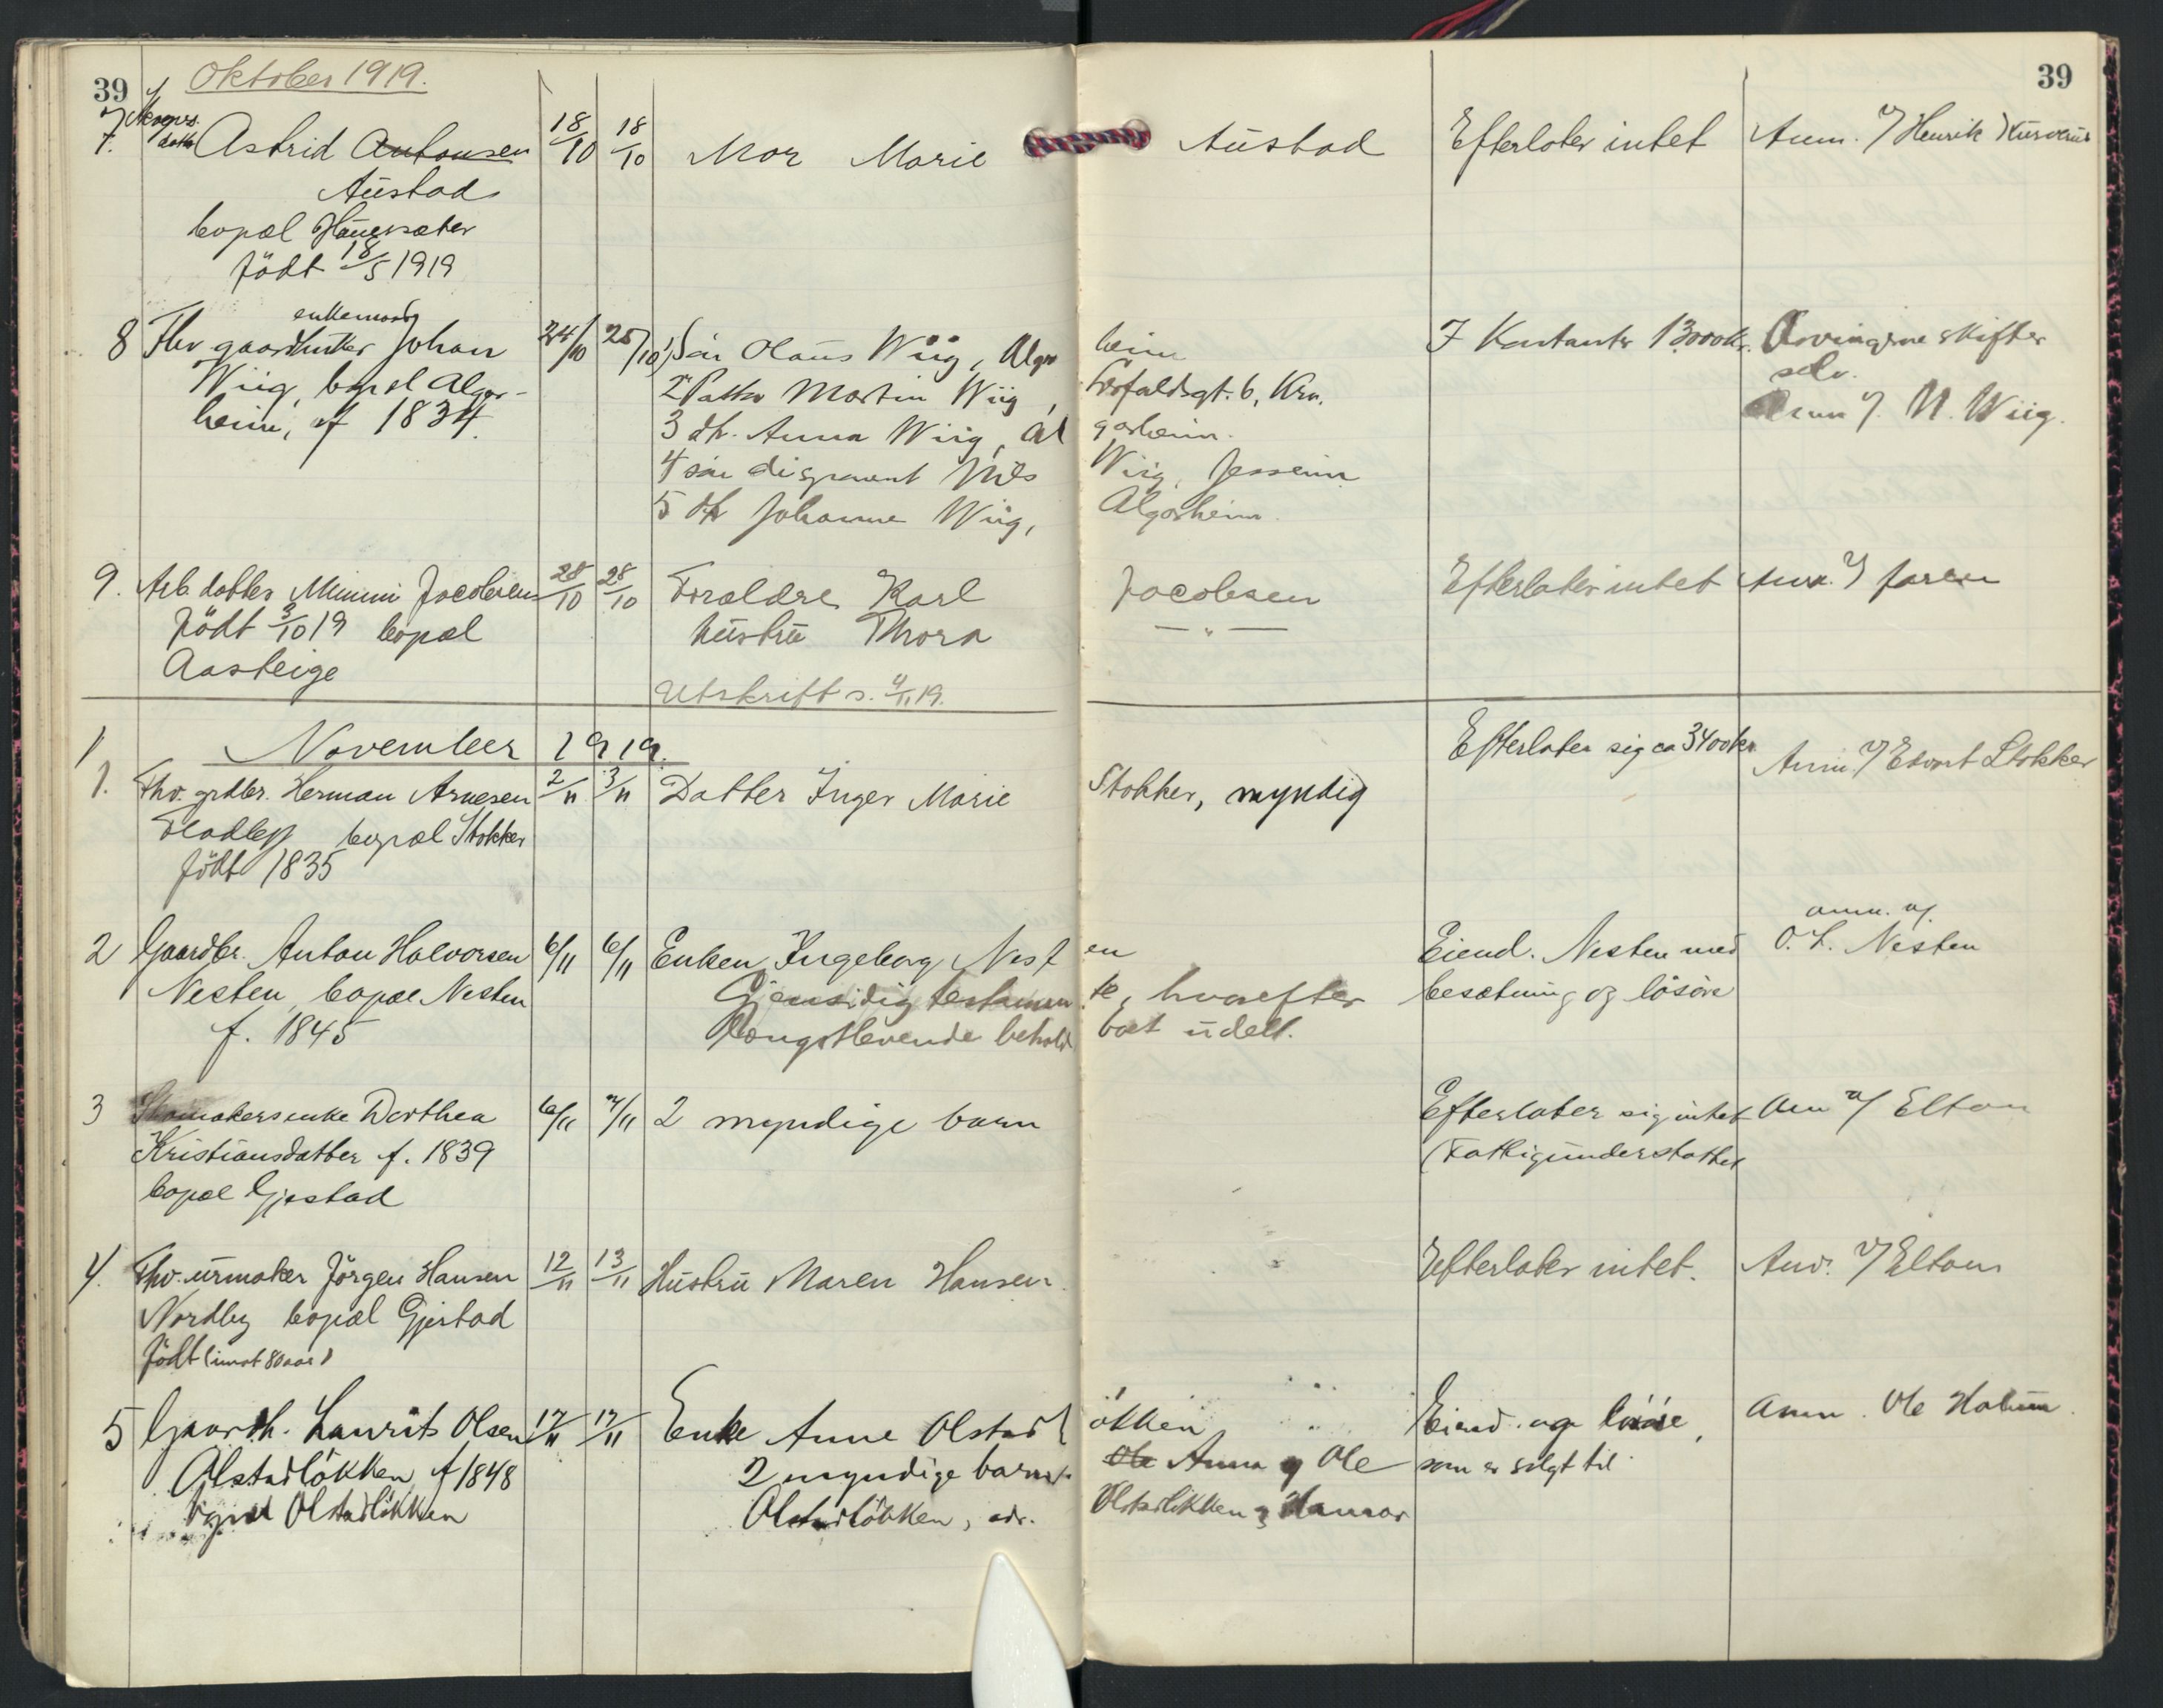 39 Oktober 1919. 39
7. datter Astrid Antonsen 18/10 18/10 Mor Marie Austad Efterlater intet Anm. af Henrik
Austad
bopæl
født 18/5 1919
enkemand
8 Fhv gaardbruker Johan 24/10 25/10 1) Søn Olaus Wiig, Algar heim I Kontanter 13000 kr. Arvingerne skifter
Wiig, bopæl Algar- 2 Martin Wiig, gt. 6, Krn. selv.
heim, f 1834. 3 dt. Anna Wiig, Al garheim. Anm af. N. Wiig.
4 søn disponent Nils Wiig, Jessheim
5 dt Johanne Wiig, Algarheim.
9. Arb. datter Mimmi Jacobsen 28/10 28/10 Forældre Karl Jacobsen Efterlater intet Anm. af faren
Født 3/10 19 bopæl hustru Thora — " —
Aasteige
Utskrift s. 4/11 19.
November 1919.
1. Fhv. grdbr. Herman Arnesen 2/11 3/11 Datter Inger Marie Stokker, myndig Efterlater sig ca 3400 kr. Anm af Edvart Stokker
Fladeby bopæl Stokker
født 1835
2 Gaardbr. Anton Halvorsen 6/11 6/11 Enken Ingeborg Nest en Eiend. Nesten med anm. af.
Nesten, bopæl Nesten Gjensidig testamen te, hvorefter besætning og løsøre O. L. Nesten
f. 1845 længstlevende behold boet udelt.
3 Skomakersenke Dorthea 6/11 7/11 2 myndige barn Efterlater sig intet Anm af Elton
Kristiansdatter f. 1839 (Fattigunderstøttet
bopæl Gjestad
4. Fhv. urmaker Jörgen Hansen 12/11 13/11 Hustru Maren Hansen. Efterlater intet. Anm. af Elton
Nordby bopæl Gjestad
født (imot 80 aar)
5 Gaardb. Laurits Olsen 17/11 17/11 Enke Anne Olstadl ökken Eiend. og løsøre, Anm. Ole
Olstadlökken, f 1848 2 myndige barn Ole Anna og Ole som er solgt til
bopæl Olstadlökken Olstadlökken, adr. Olstadlökken og